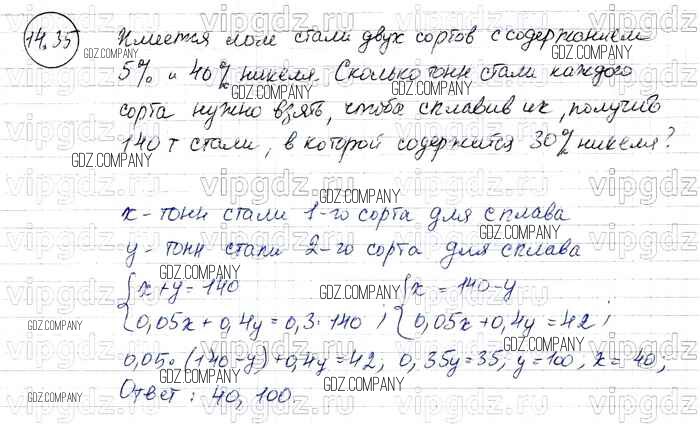 14.35 Имеется лом стали двух сортов с содержанием
5% и 40% никеля. Сколько тонн стали каждого
сорта нужно взять, чтобы сплавив их, получить
140 т стали, в которой содержится 30% никеля?
x - тонн стали 1-го сорта для сплава
y - тонн стали 2-го сорта для сплава
{x+y=140 {x = 140-y
{0,05x+0,4y=0,3·140 ; {0,05x+0,4y=42 ;
0,05·(140-y)+0,4y=42, 0,35y=35; y=100, x=40,
Ответ: 40, 100.
GDZ.COMPANY
vipgdz.ru